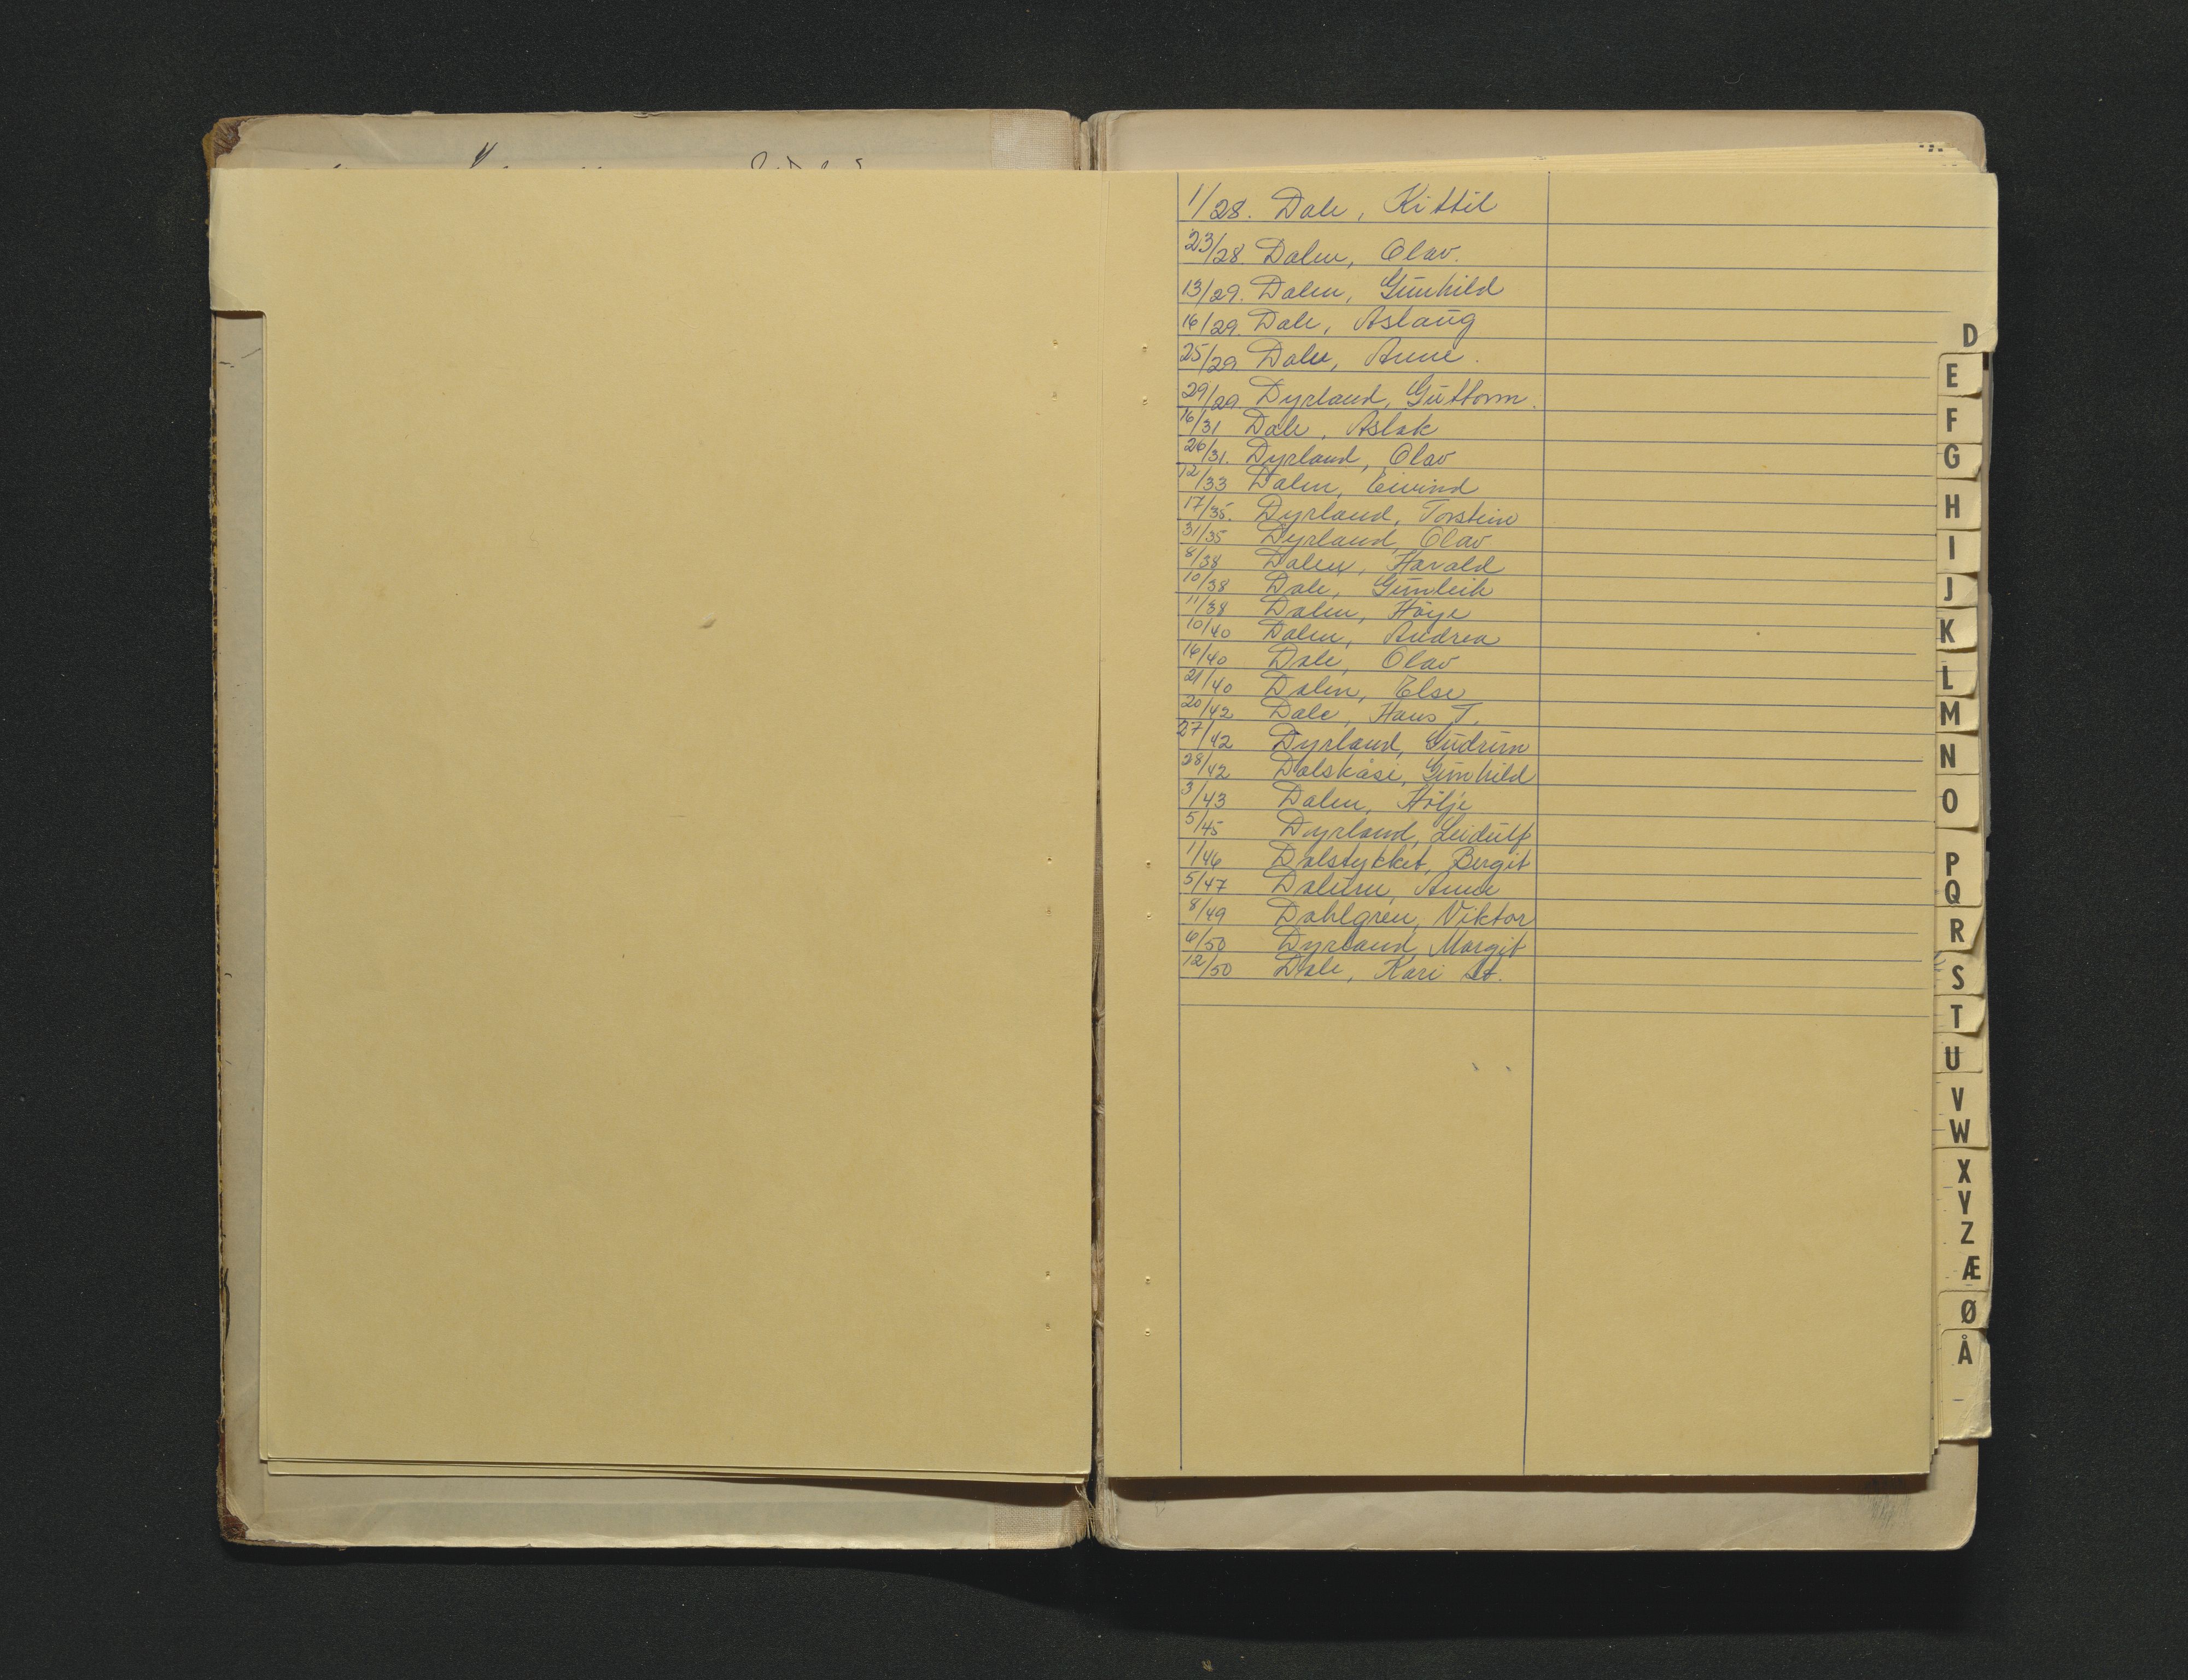 1/28. Dale, Kittil
23/28. Dalen, Olav.
13/29. Dalen, Gunhild
16/29. Dale, Aslaug
25/29. Dale, Anne.
29/29 Dyrland, Guttorm.
16/31 Dale, Aslak
26/31. Dyrland, Olav
12/33 Dalen, Eivind
17/35. Dyrland, Torstein
31/35 Dyrland, Olav
8/38 Dalen, Harald
10/38 Dale, Gunleik
11/38 Dalen, Höye
10/40 Dalen, Andrea
16/40 Dale, Olav
21/40 Dalen, Else
20/42 Dale, Hans T.
27/42 Dyrland, Gudrun
28/42 Dalskåsi, Gunhild
3/43 Dalen, Hölje
5/45 Dyrland, Leidulf
1/46 Dalstykket, Bergit
5/47 Anne
8/49 Dahlgren, Viktor
6/50 Dyrland, Margit
12/50 Dale, Kari
D
E
F
G
H
I
J
K
L
M
N
O
P
Q
R
S
T
U
V
W
X
Y
Z
Æ
Ø
Å